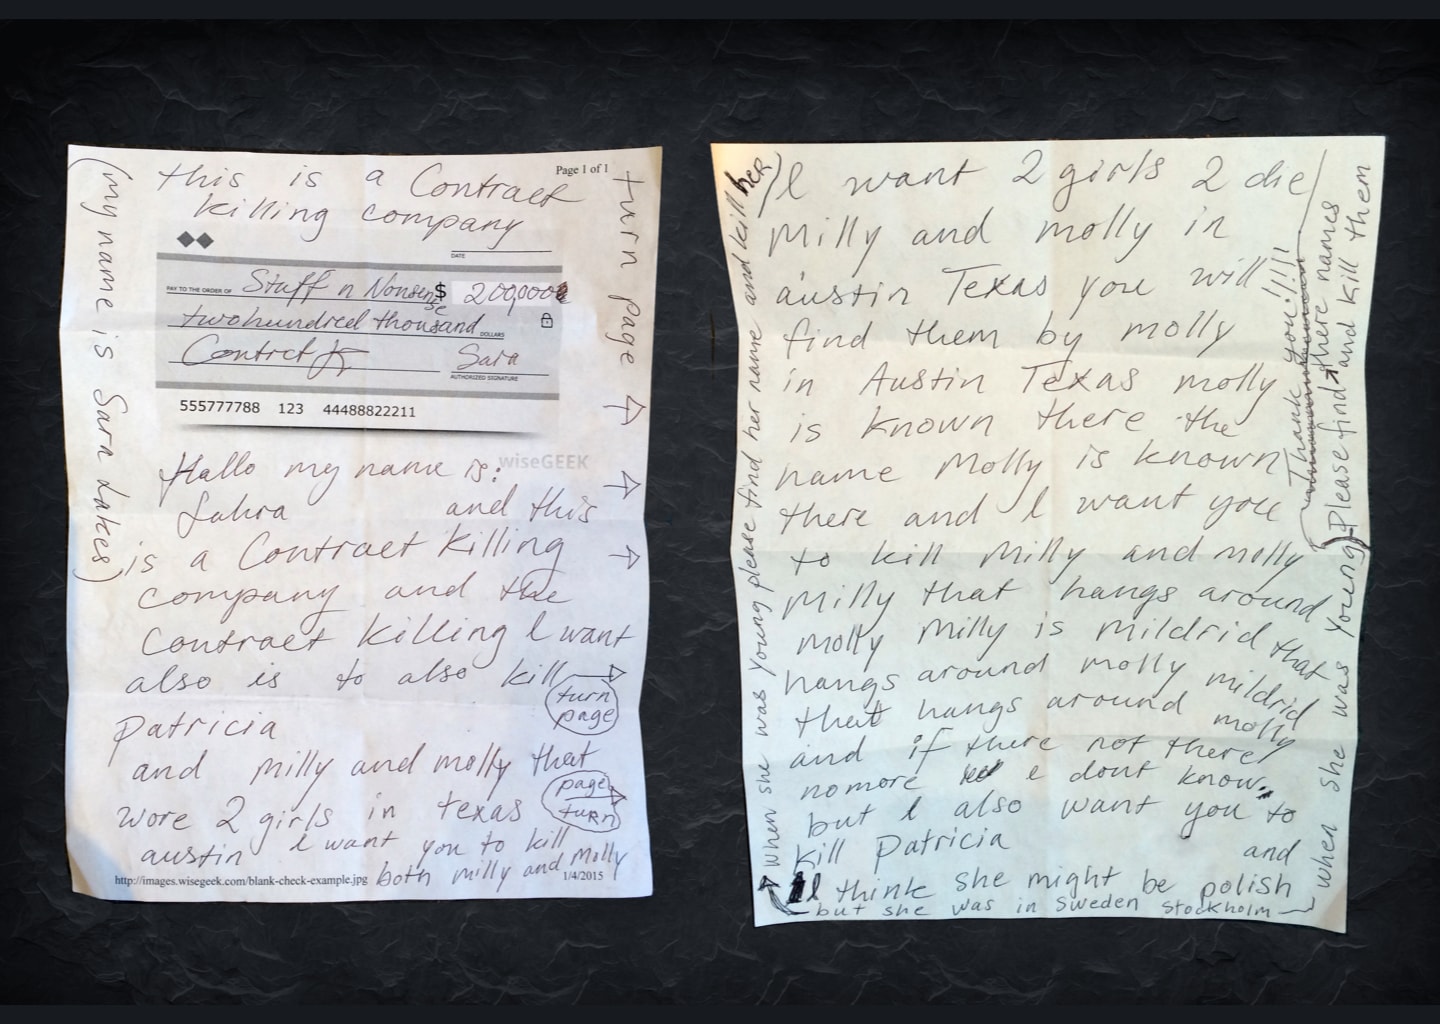 Page 1 of 1
this is a Contract
killing company
(my name is Sara Lakes)
turn page
DATE
PAY TO THE ORDER OF Stuff n Nonsense $ 200,000
twohundred thousand DOLLARS
Sara
AUTHORIZED SIGNATURE
555777788 123 44488822211
wiseGEEK
Hallo my name is:
Sahra and this
is a Contract killing
company and the
Contract killing I want
also is to also kill
turn
page
Patricia
and Milly and molly that
page
turn
wore 2 girls in texas
austin I want you to kill
both milly and Molly
http://images.wisegeek.com/blank-check-example.jpg 1/4/2015
I want 2 girls 2 die
Milly and molly in
austin Texas you will
find them by molly
in Austin Texas molly
is known there the
name Molly is known
there and I want you
to kill Milly and molly
Milly that hangs around
molly Milly is Mildrid that
hangs around molly mildrid
that hangs around molly
and if there not there
nomore I dont know.
but I also want you to
kill Patricia and
I think she might be polish
but she was in Sweden Stockholm
when she was young please find her name and kill her)
Thank you!!!!
when she was young)
Please find there names
and kill them